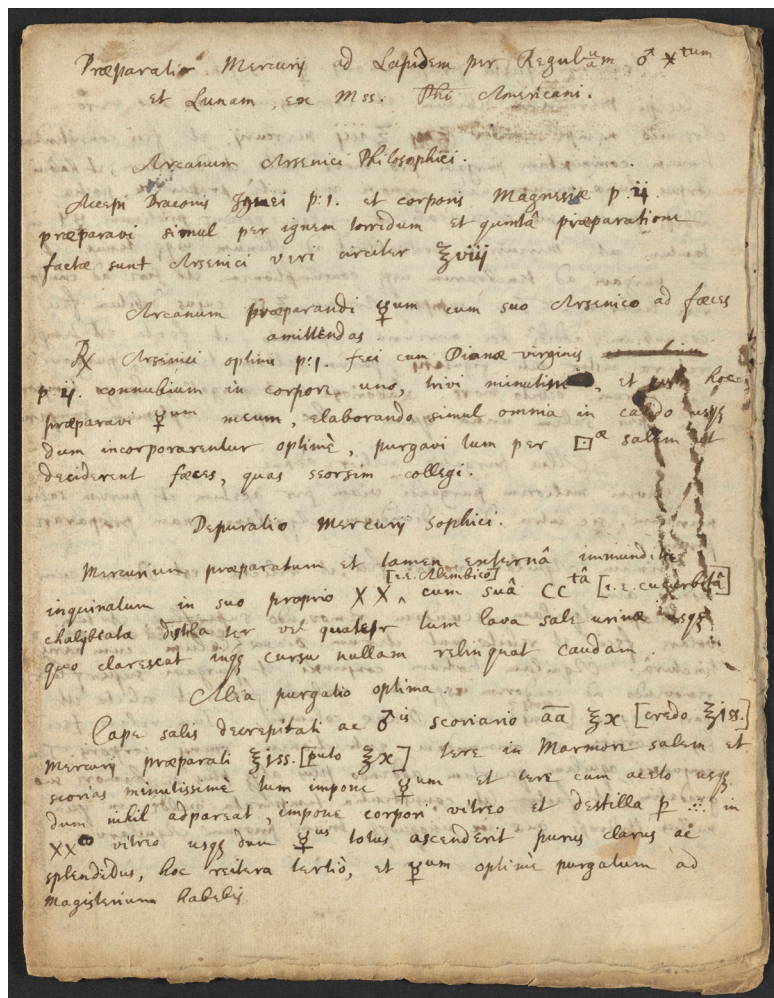 Præparatio Mercurij ad Lapidem per Regulum ♂ ⚹tum
et Lunam, ex Mss. Phi Americani.
Arcanum Arsenici Philosophici.
Accepi Draconis Ignei p:1. et corporis Magnesiæ p.ij.
præparavi simul per ignem torridum et quintâ præparatione
factæ sunt Arsenici veri circiter ℥viij
Arcanum præparandi ☿um cum suo Arsenico ad fæces
amittendas
℞ Arsenici optimi p:1. feci cum Dianæ virginis
p ij. connubium in corpore uno, trivi minutim, et hoc
præparavi ☿um meum, elaborando simul omnia in calido usqꝫ
dum incorporarentur optimè, purgavi tum per 🞕æ salem ut
deciderent fæces, quas seorsim collegi.
Depuratio Mercurij Sophici.
Mercurium præparatum et tamen externâ immunditie
[i.e. Alembico]
inquinatum in suo proprio XX ‸ cum suâ CCtâ [i.e. cucurbitâ]
chalybeata distilla ter vel quater tum lava sale urinæ usqꝫ
quo clarescat inqꝫ cursu nullam relinquat caudam.
Alia purgatio optima.
Cape salis decrepitati ac ♂is scoriario āā ℥x [credo ℥jss.]
Mercurij præparati ℥jss. [puto ℥x] tere in Marmore salem et
scorias minutissimè tum impone ☿um et tere cum aceto usqꝫ
dum nihil adpareat, impone corpori vitreo et destilla p ∴ in
XXco vitreo usqꝫ dum ☿us totus ascenderit purus clarus ac
splendidus, hoc reitera tertiò, et ☿um optimè purgatum ad
magisterium habebis